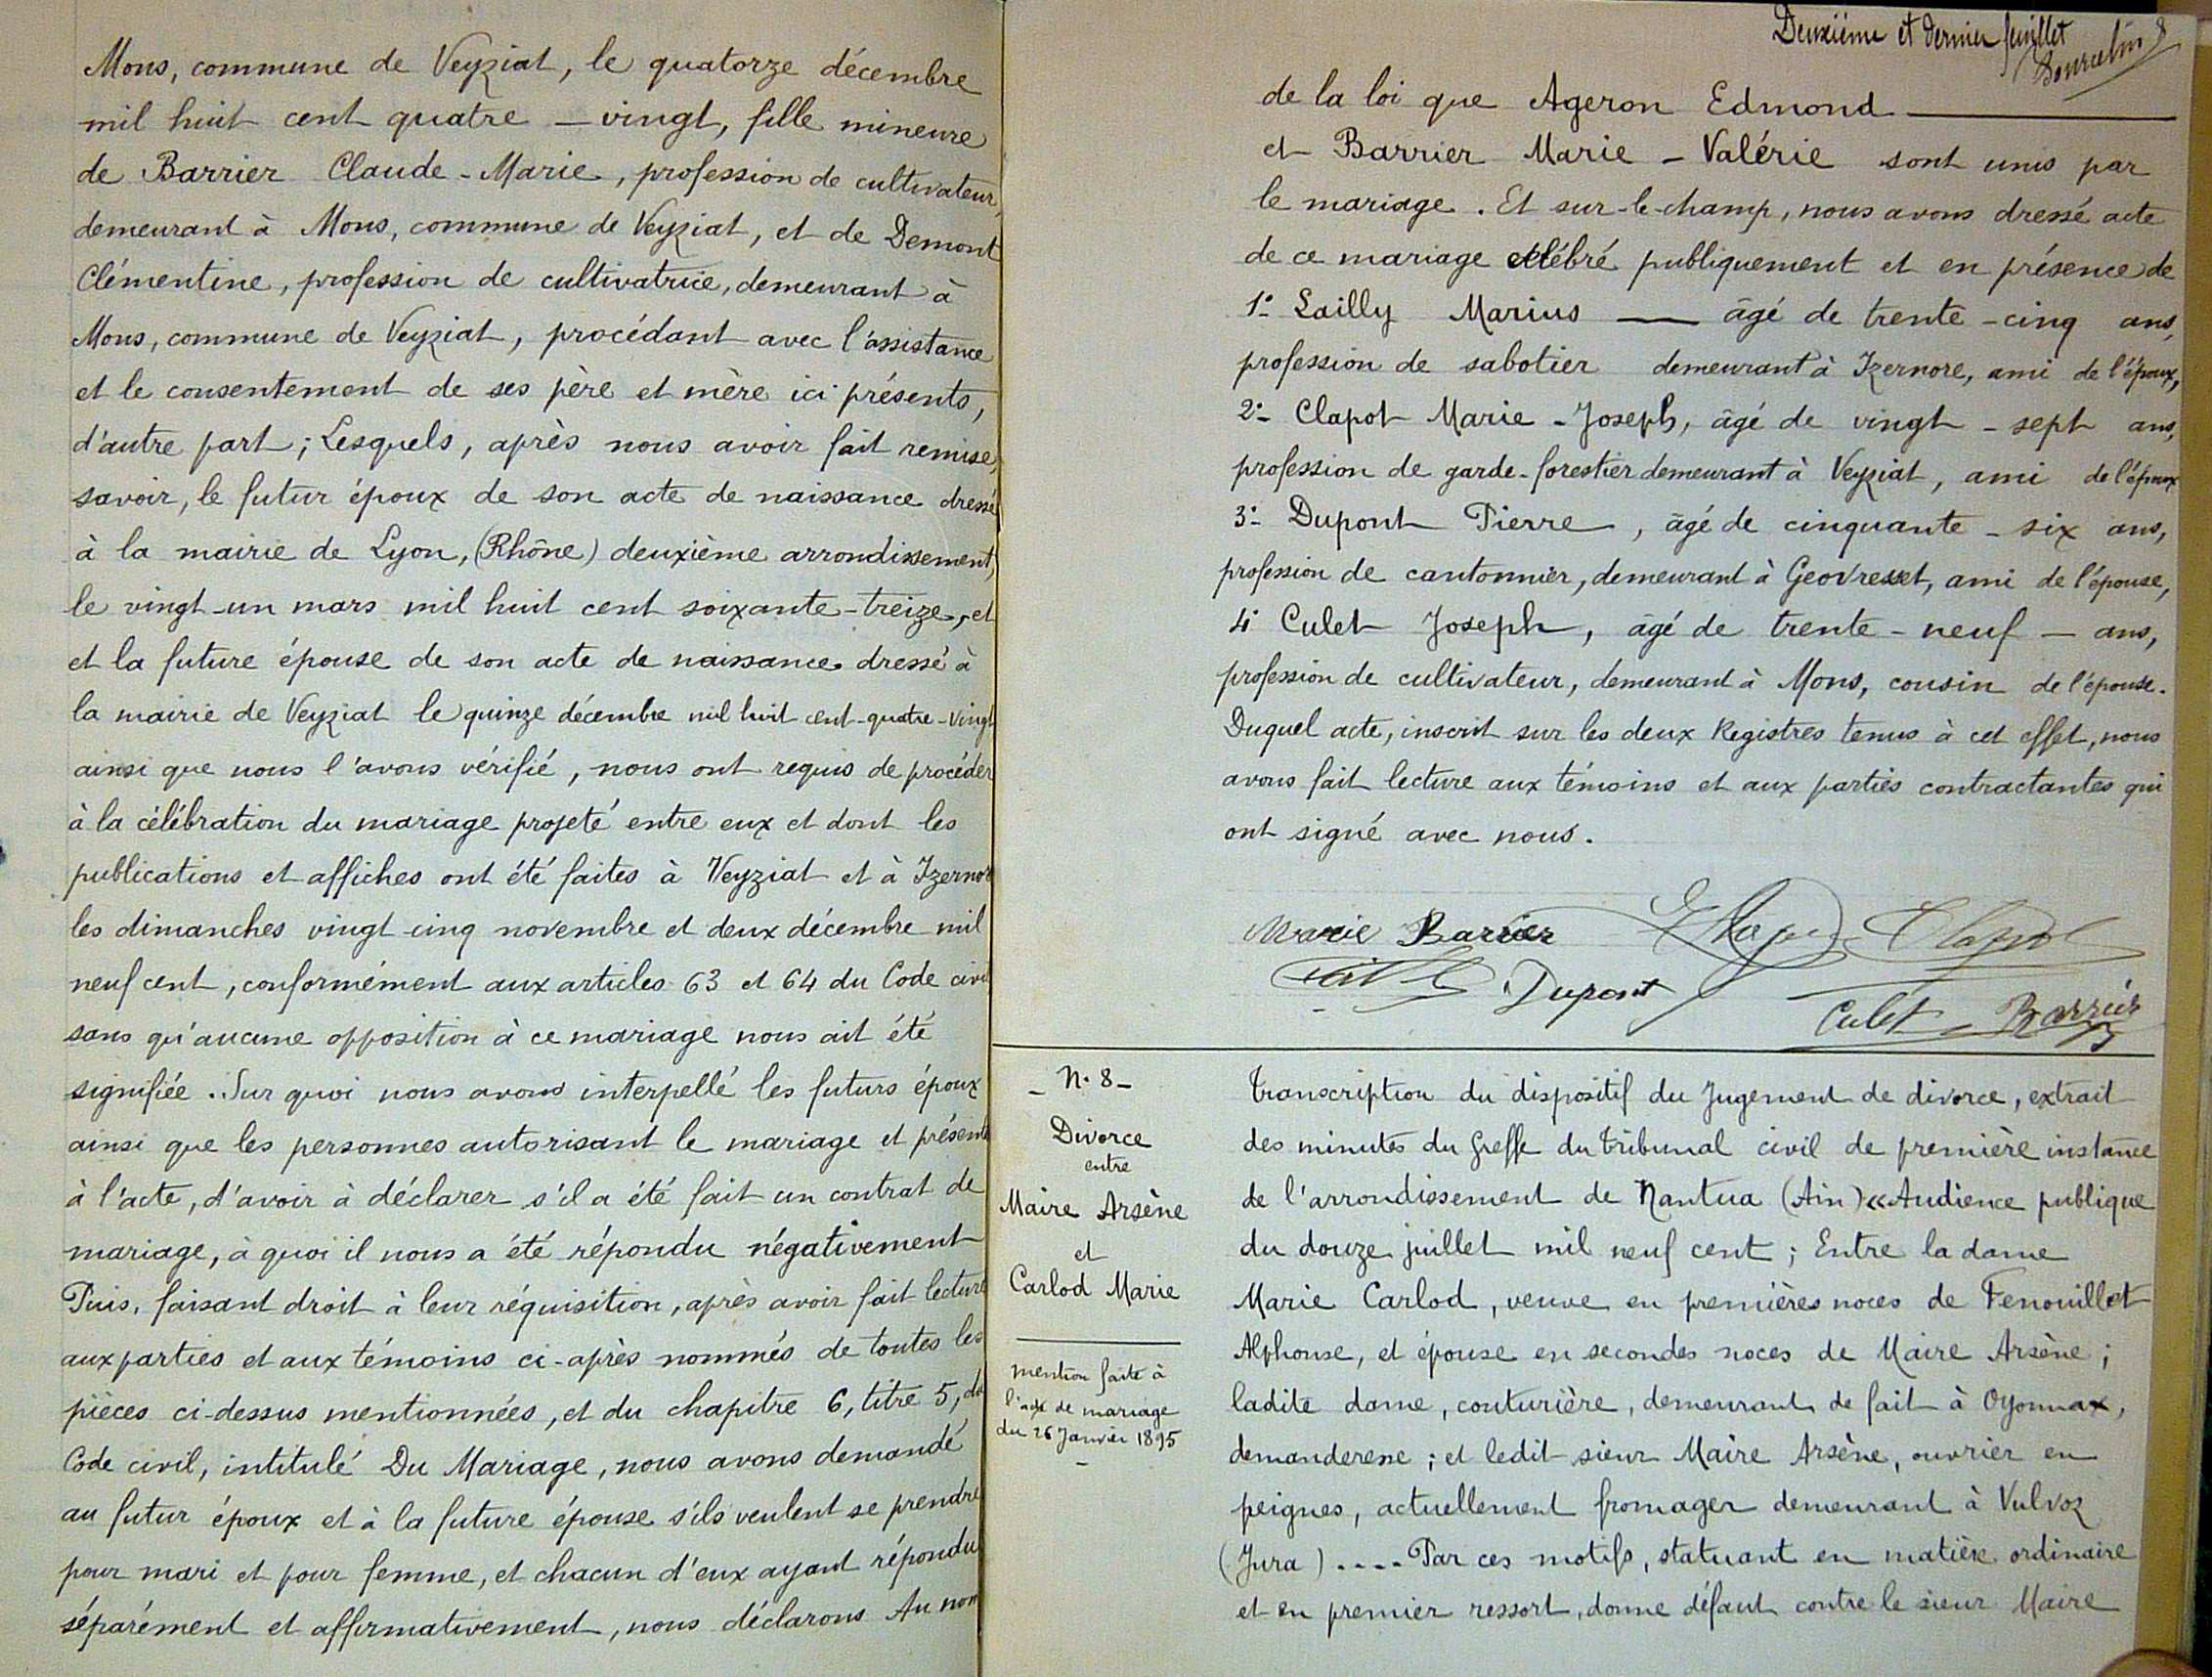 Mons, commune de Veyziat, le quatorze décembre
mil huit cent quatre - vingt, fille mineure
de Barrier Claude-Marie, profession de cultivateur,
demeurant à Mons, commune de Veyziat, et de Demont
Clémentine, profession de cultivatrice, demeurant à
Mons, commune de Veyziat, procédant avec l'assistance
et le consentement de ses père et mère ici présents,
d'autre part; Lesquels, après nous avoir fait remise,
savoir, le futur époux de son acte de naissance dressé
à la mairie de Lyon, (Rhône) deuxième arrondissement,
le vingt-un mars mil huit cent soixante-treize, et
et la future épouse de son acte de naissance dressé à
la mairie de Veyziat le quinze décembre mil huit cent-quatre-vingt
ainsi que nous l'avons vérifié, nous ont requis de procéder
à la célébration du mariage projeté entre eux et dont les
publications et affiches ont été faites à Veyziat et à Izernore
les dimanches vingt-cinq novembre et deux décembre mil
neuf cent, conformément aux articles 63 et 64 du Code civil
sans qu'aucune opposition à ce mariage nous ait été
signifiée. Sur quoi nous avons interpellé les futurs époux
ainsi que les personnes autorisant le mariage et présentes
à l'acte, d'avoir à déclarer s'il a été fait un contrat de
mariage, à quoi il nous a été répondu négativement
Puis, faisant droit à leur réquisition, après avoir fait lecture
aux parties et aux témoins ci-après nommés de toutes les
pièces ci-dessus mentionnées, et du chapitre 6, titre 5, du
Code civil, intitulé Du Mariage, nous avons demandé
au futur époux et à la future épouse s'ils veulent se prendre
pour mari et pour femme, et chacun d'eux ayant répondu
séparément et affirmativement, nous déclarons Au nom
Deuxième et dernier feuillet
de la loi que Ageron Edmond
et Barrier Marie - Valérie sont unis par
le mariage. Et sur-le-champ, nous avons dressé acte
de ce mariage célébré publiquement et en présence de
1° Lailly Marius âgé de trente-cinq ans,
profession de sabotier demeurant à Izernore, ami de l'époux,
2° Clapot Marie-Joseph, âgé de vingt-sept ans,
profession de garde-forestier demeurant à Veyziat, ami de l'époux
3° Dupont Pierre, âgé de cinquante-six ans,
profession de cantonnier, demeurant à Geovresset, ami de l'épouse,
4° Culet Joseph, âgé de trente-neuf - ans,
profession de cultivateur, demeurant à Mons, cousin de l'épouse.
Duquel acte, inscrit sur les deux Registres tenus à cet effet, nous
avons fait lecture aux témoins et aux parties contractantes qui
ont signé avec nous.
Marie Barrier Clapot
Dupont
Culet Barrier
- N. 8 -
Divorce
entre
Maire Arsène
et
Carlod Marie
mention faite à
l'acte de mariage
du 26 Janvier 1895
Transcription du dispositif du Jugement de divorce, extrait
des minutes du greffe du tribunal civil de première instance
de l'arrondissement de Nantua (Ain) «Audience publique
du douze juillet mil neuf cent; Entre la dame
Marie Carlod, veuve en premières noces de Fenouillet
Alphonse, et épouse en secondes noces de Maire Arsène;
ladite dame, couturière, demeurant de fait à Oyonnax,
demanderesse; et ledit sieur Maire Arsène, ouvrier en
peignes, actuellement fromager demeurant à Vulvoz
(Jura).... Par ces motifs, statuant en matière ordinaire
et en premier ressort, donne défaut contre le sieur Maire